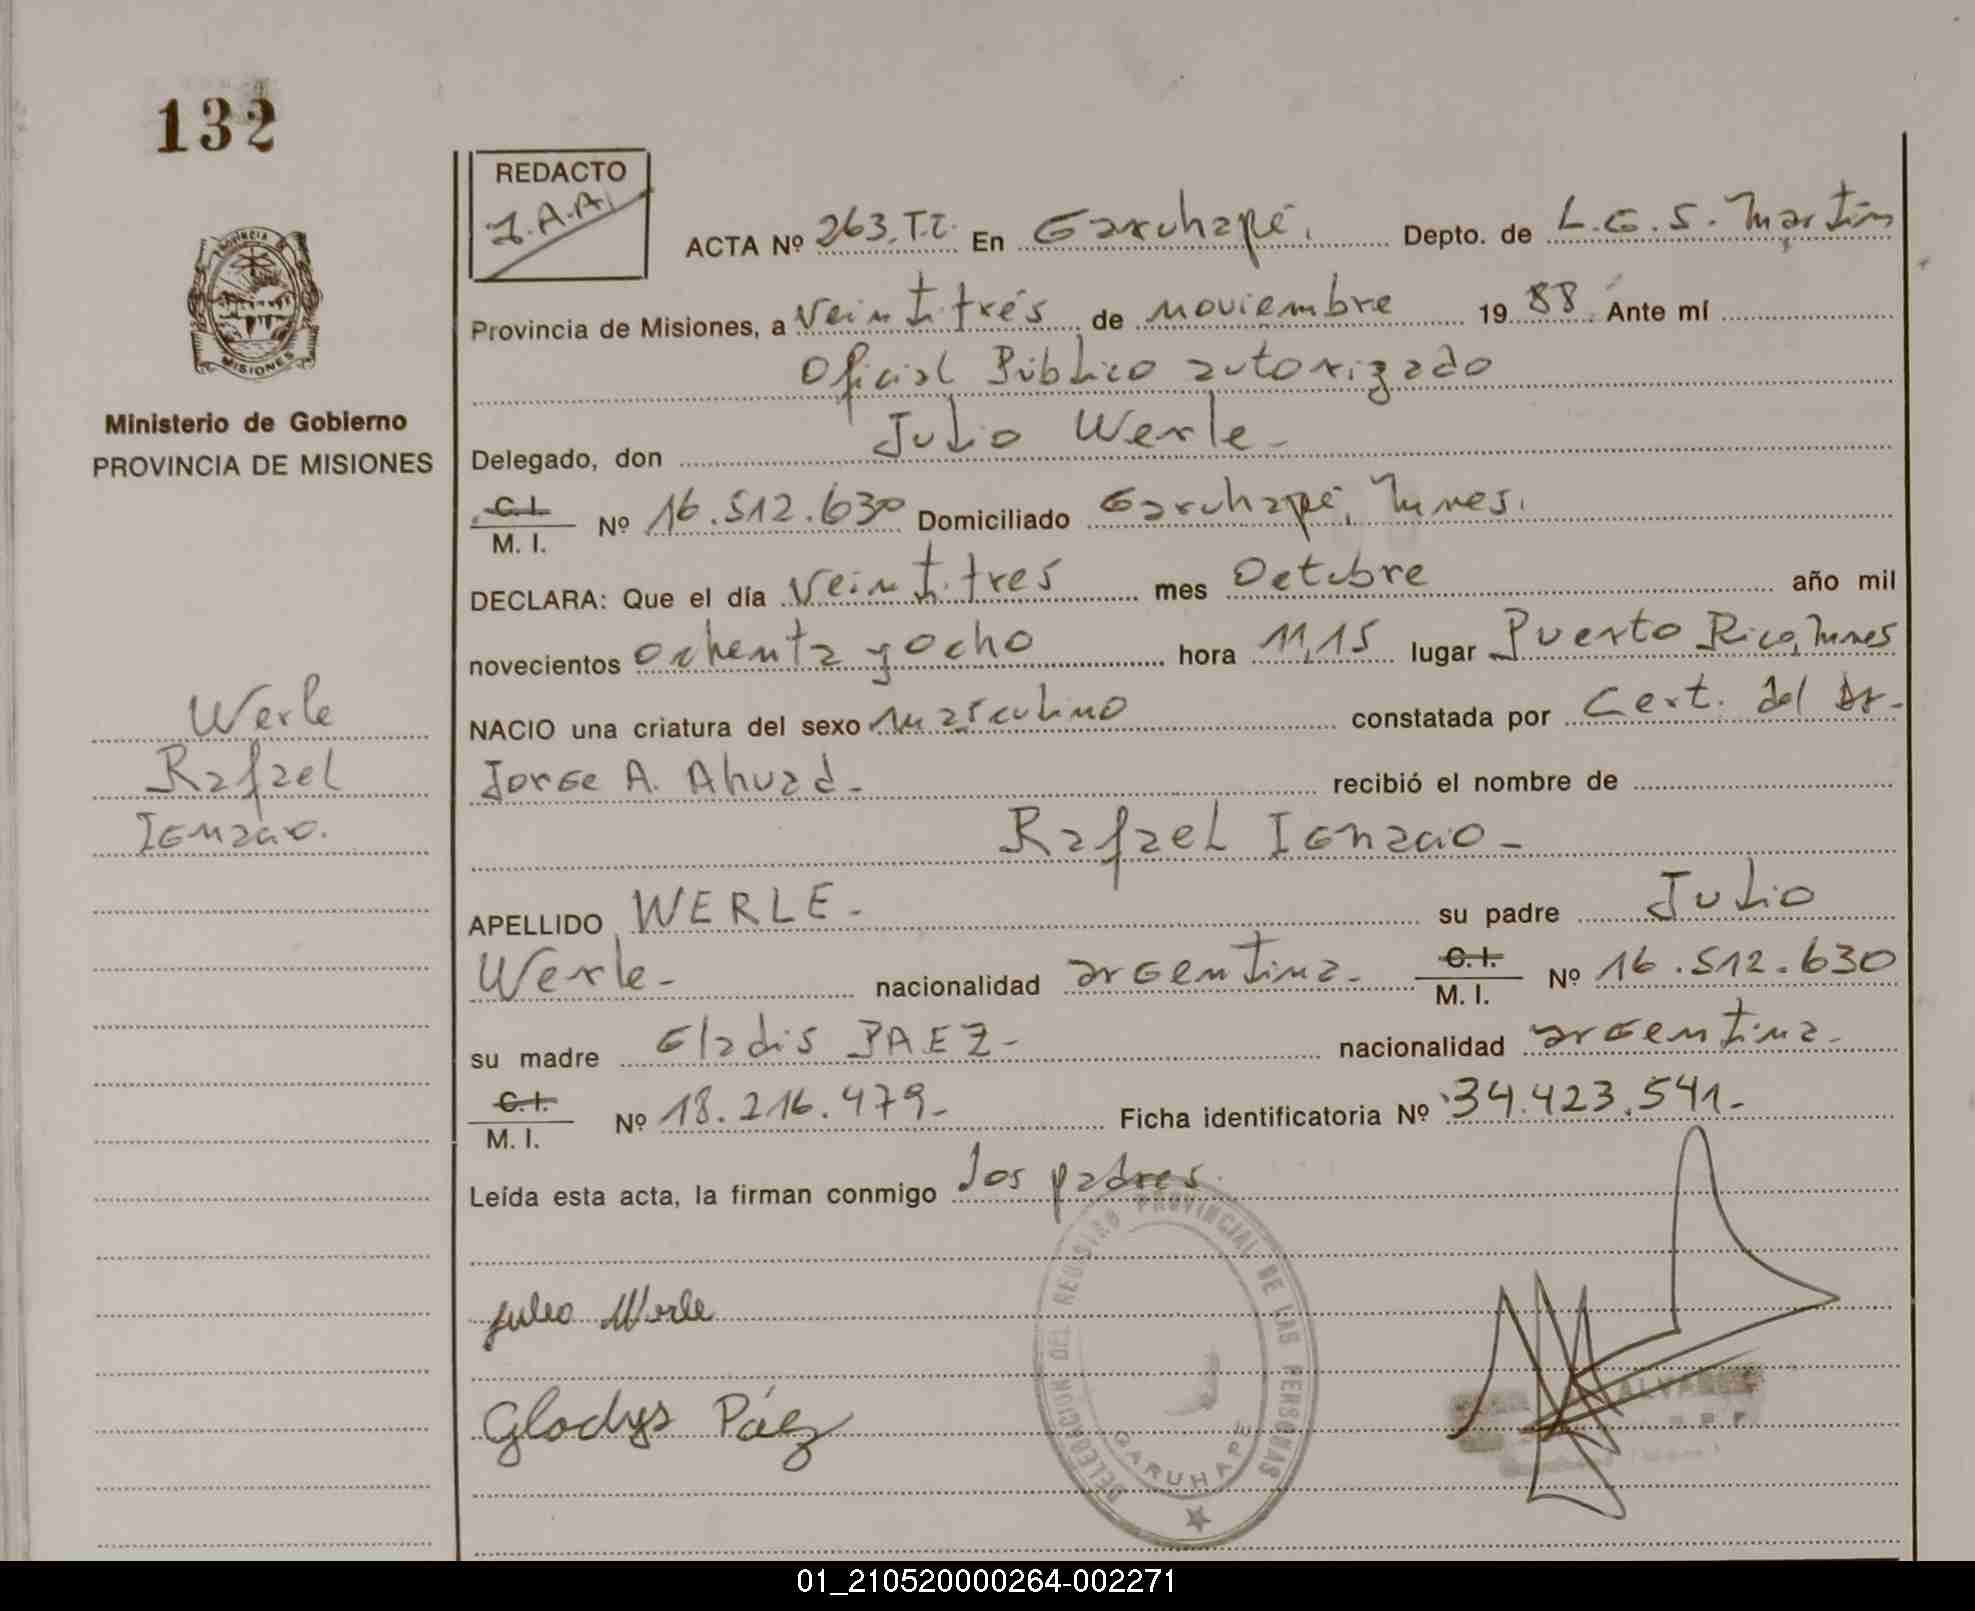 132
REDACTO
J.A.A.
ACTA Nº 263.T.I. En Garuhapé. Depto. de L.G.S. Martín
Provincia de Misiones, a Veintitrés de noviembre 1988 Ante mí
Oficial Público autorizado
Delegado, don Julio Werle-
C.I. M. I. Nº 16.512.630 Domiciliado Garuhapé, Mnes.
DECLARA: Que el día Veintitres mes Octubre año mil
novecientos ochenta y ocho hora 11,15 lugar Puerto Rico, Mnes
NACIO una criatura del sexo masculino constatada por Cert. del Dr.
Jorge A. Ahuad- recibió el nombre de
Rafael Ignacio-
APELLIDO WERLE- su padre Julio
Werle- nacionalidad argentina- C.I. M. I. Nº 16.512.630
su madre Gladis PAEZ- nacionalidad argentina-
C.I. M. I. Nº 18.216.479- Ficha identificatoria Nº 34.423.541-
Leída esta acta, la firman conmigo los padres.
Julio Werle
Gladys Páez
PROVINCIA
MISIONES
Ministerio de Gobierno
PROVINCIA DE MISIONES
Werle
Rafael
Ignacio.
DELEGACION DEL REGISTRO PROVINCIAL DE LAS PERSONAS
GARUHAPE
ALVAREZ
01_210520000264-002271